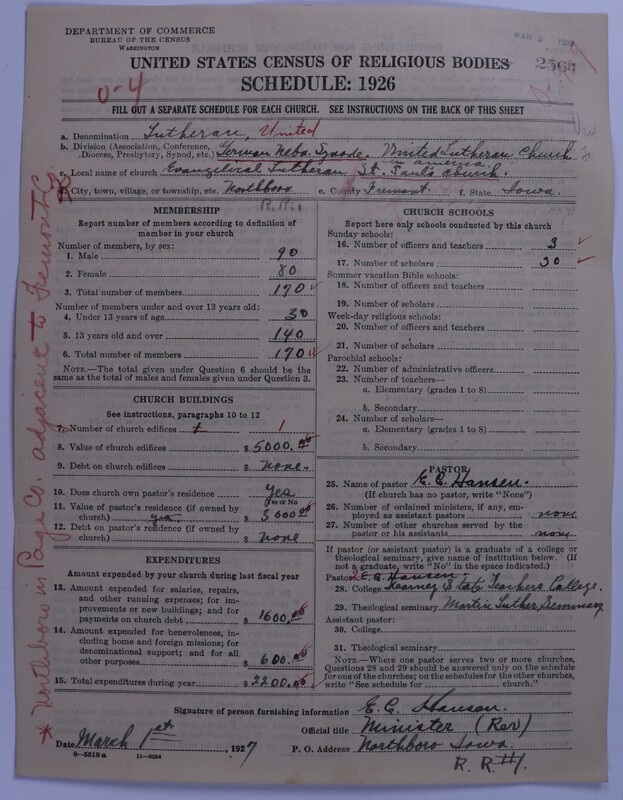 DEPARTMENT OF COMMERCE
BUREAU OF THE CENSUS
WASHINGTON
UNITED STATES CENSUS OF RELIGIOUS BODIES
2564
SCHEDULE: 1926
0-4
FILL OUT A SEPARATE SCHEDULE FOR EACH CHURCH. SEE INSTRUCTIONS ON THE BACK OF THIS SHEET
a. Denomination Lutheran, United
b. Division (Association, Conference, Diocese, Presbytery, Synod, etc.) German Nebr. Synode, United Lutheran Church in America
c. Local name of church Evangelical Lutheran St. Pauls Church.
City, town, village, or township, etc. Northboro e. County Fremont f. State Iowa.
R.R. 1
MEMBERSHIP
Report number of members according to definition of
member in your church
Number of members, by sex:
1. Male 90
2. Female 80
3. Total number of members 170
Number of members under and over 13 years old:
4. Under 13 years of age 30
5. 13 years old and over 140
6. Total number of members 170
NOTE.—The total given under Question 6 should be
same as the total of males and females given under Question 3.
CHURCH BUILDINGS
See instructions, paragraphs 10 to 12
7. Number of church edifices 1
8. Value of church edifices $ 5000.00
9. Debt on church edifices $ none.
10. Does church own pastor's residence Yes
(Yes or No)
11. Value of pastor's residence (if owned by
church) yes. $ 3000.00
12. Debt on pastor's residence (if owned by
church) $ none
EXPENDITURES
Amount expended by your church during last fiscal year
13. Amount expended for salaries, repairs,
and other running expenses; for im-
provements or new buildings; and for
payments on church debt $ 1600.00
14. Amount expended for benevolences, in-
cluding home and foreign missions; for
denominational support; and for all
other purposes $ 600.00
15. Total expenditures during year $ 2200.00
CHURCH SCHOOLS
Report here only schools conducted by this church
Sunday schools:
16. Number of officers and teachers 3
17. Number of scholars 30
Summer vacation Bible schools:
18. Number of officers and teachers
19. Number of scholars
Week-day religious schools:
20. Number of officers and teachers
21. Number of scholars
Parochial schools:
22. Number of administrative officers
23. Number of teachers—
a. Elementary (grades 1 to 8)
b. Secondary
24. Number of scholars—
a. Elementary (grades 1 to 8)
b. Secondary
PASTOR
25. Name of pastor E. C. Hansen.
(If church has no pastor, write "None")
26. Number of ordained ministers, if any, em-
ployed as assistant pastors none
27. Number of other churches served by the
pastor or his assistants none
If pastor (or assistant pastor) is a graduate of a college or
theological seminary, give name of institution below. (If
not a graduate, write "No" in the space indicated.)
Pastor: E. C. Hansen.
28. College Kearney State Teachers College.
29. Theological seminary Martin Luther Seminary
Assistant pastor:
30. College
31. Theological seminary
NOTE.—Where one pastor serves two or more churches,
Questions 28 and 29 should be answered only on the schedule
for one of the churches; on the schedules for the other churches,
write "See schedule for church."
Signature of person furnishing information E. C. Hansen
Official title Minister (Rev)
Date March 1st, 1927
P. O. Address Northboro Iowa.
R. R. #1.
8-5518 a 11-4054
* Northboro in Page Co. adjacent to Fremont Co.